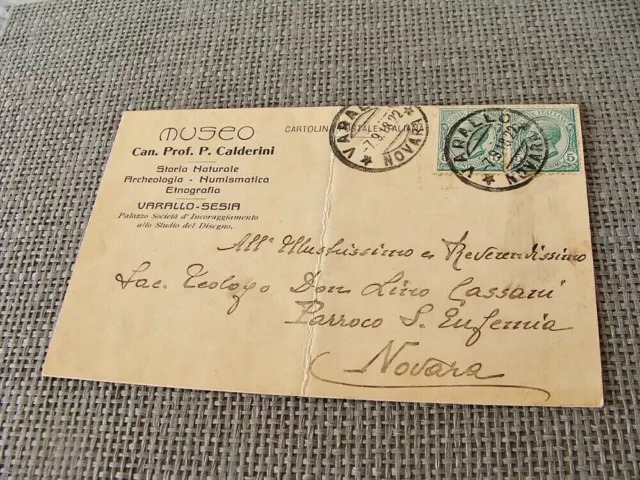 MUSEO
Can. Prof. P. Calderini
Storia Naturale
Archeologia - Numismatica
Etnografia
VARALLO-SESIA
Palazzo Società d'Incoraggiamento
allo Studio del Disegno.
CARTOLINA POSTALE ITALIANA
VARALLO
NOVARA
VARALLO
NOVARA
5
All' Illustrissimo e Reverendissimo
Sac. Teologo Don Lino Cassani
Parroco S. Eufemia
Novara